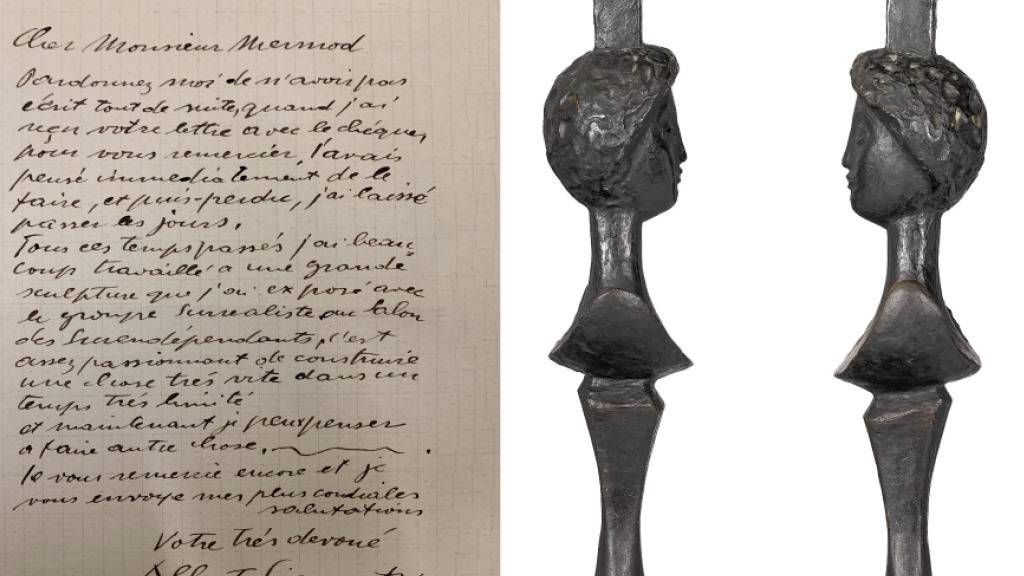 Cher Monsieur Mermod
Pardonnez moi de n'avoir pas
écrit tout de suite, quand j'ai
reçu votre lettre avec le chèque,
pour vous remercier, j'avais
pensé immediatement de le
faire, et puis-perdu, j'ai laissé
passer les jours.
Tous ces temps passés j'ai beau
coup travaillé a une grande
sculpture que j'ai exposé avec
le groupe Surrealiste au Salon
des Surendépendants, c'est
assez passionnant de construire
une chose trés vite dans un
temps trés limité
et maintenant je peux penser
a faire autre chose.
Je vous remercie encore et je
vous envoye mes plus cordiales
salutations
Votre trés devoué